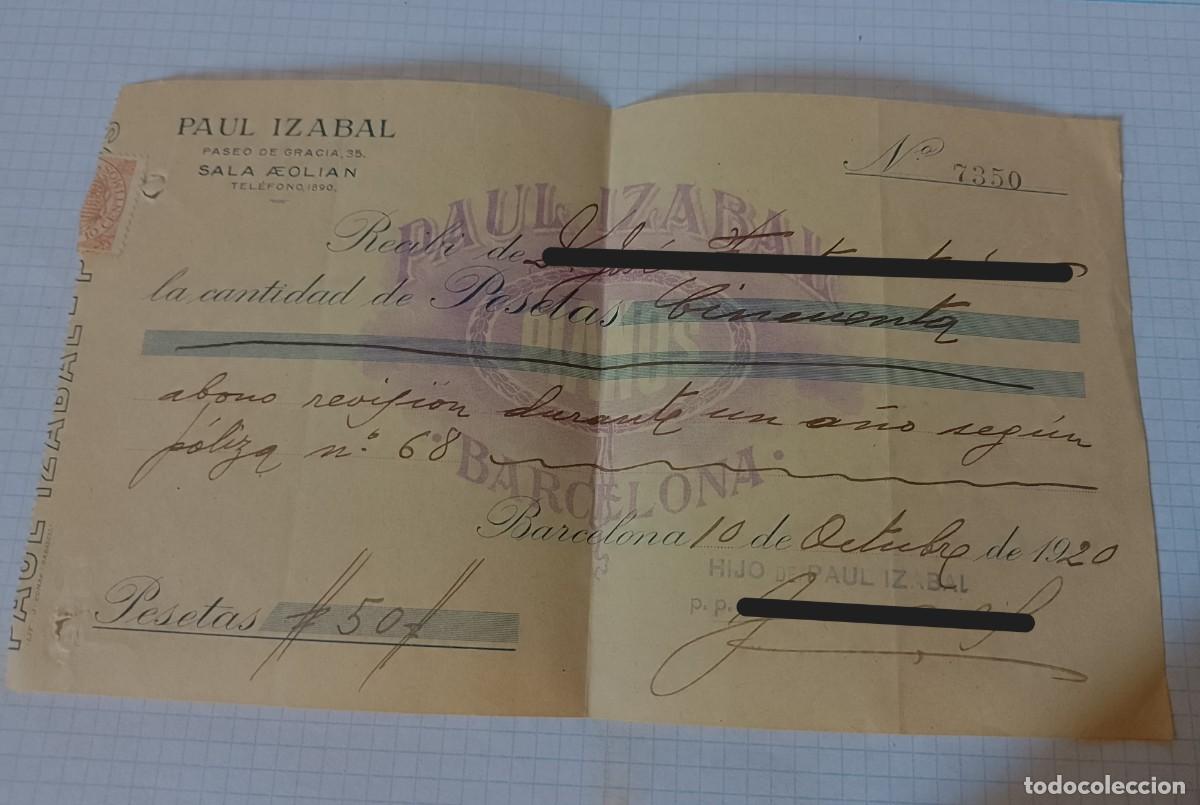 PAUL IZABAL
PASEO DE GRACIA, 35.
SALA ÆOLIAN
TELÉFONO, 1890.
Nº 7350
10 CENTIMOS
PAUL IZABAL
PIANOS
BARCELONA
Recibí de D. José
la cantidad de Pesetas Cincuenta
abono revisión durante un año según
póliza n.º 68
Barcelona 10 de Octubre de 1920
HIJO DE PAUL IZABAL
p. p.
Pesetas # 50 #
PAUL IZABAL
todocoleccion